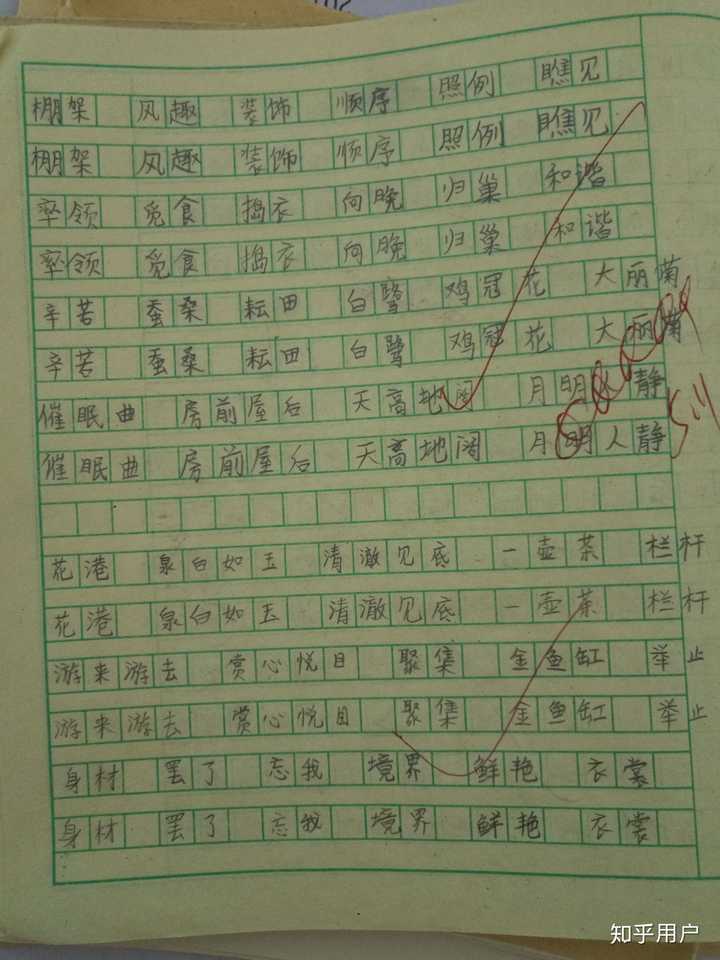 棚架 风趣 装饰 顺序 照例 瞧见
棚架 风趣 装饰 顺序 照例 瞧见
率领 觅食 捣衣 向晚 归巢 和谐
率领 觅食 捣衣 向晚 归巢 和谐
辛苦 蚕桑 耘田 白鹭 鸡冠花 大丽菊
辛苦 蚕桑 耘田 白鹭 鸡冠花 大丽菊
催眠曲 房前屋后 天高地阔 月明人静
催眠曲 房前屋后 天高地阔 月明人静
5.11
花港 泉白如玉 清澈见底 一壶茶 栏杆
花港 泉白如玉 清澈见底 一壶茶 栏杆
游来游去 赏心悦目 聚集 金鱼缸 举止
游来游去 赏心悦目 聚集 金鱼缸 举止
身材 罢了 忘我 境界 鲜艳 衣裳
身材 罢了 忘我 境界 鲜艳 衣裳
知乎用户